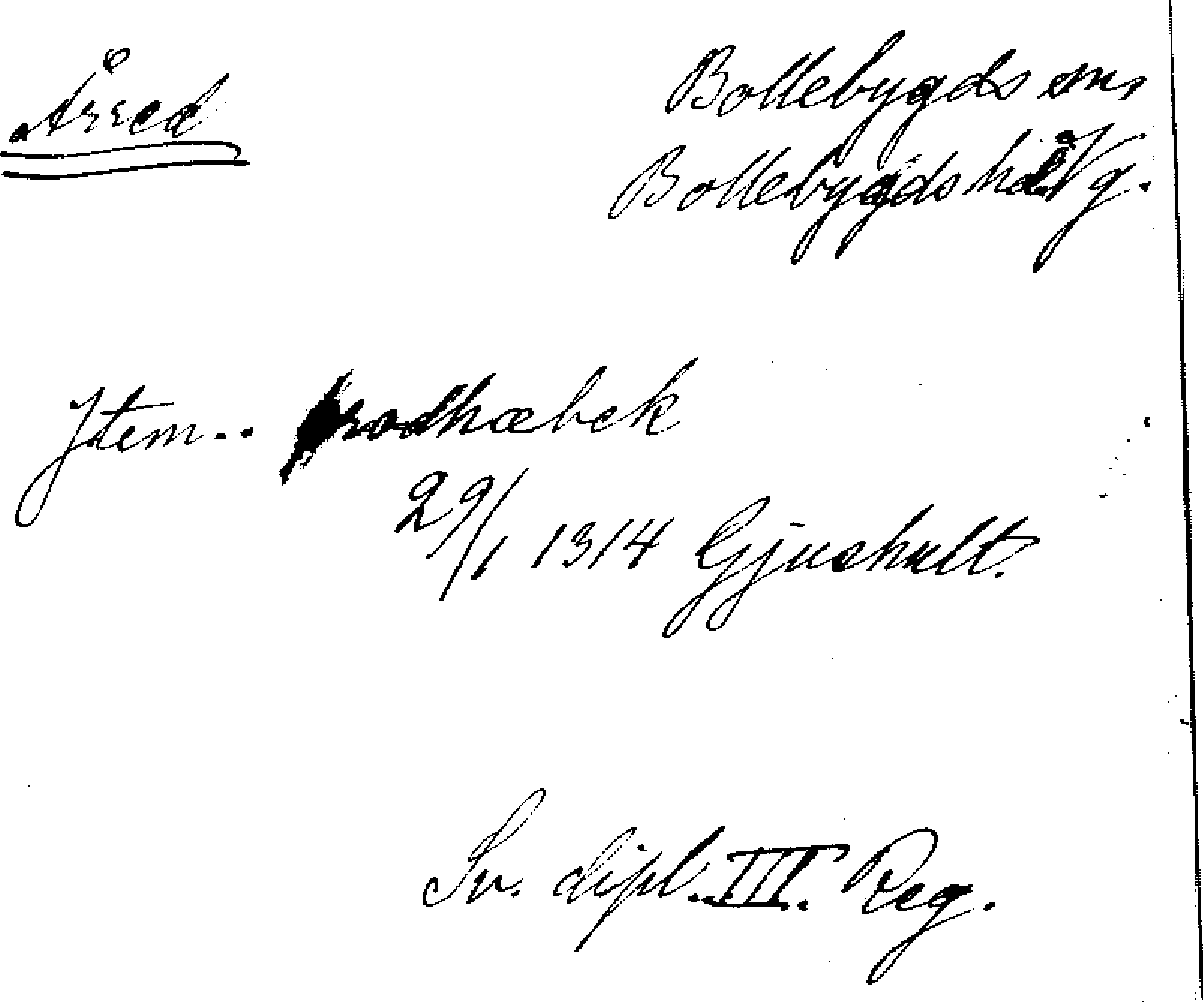 Årred
Bollebygds sn,
Bollebygds hd Vg.
Jtem..
29/1 1314 Gjushult.
Sv. dipl. III. Reg.